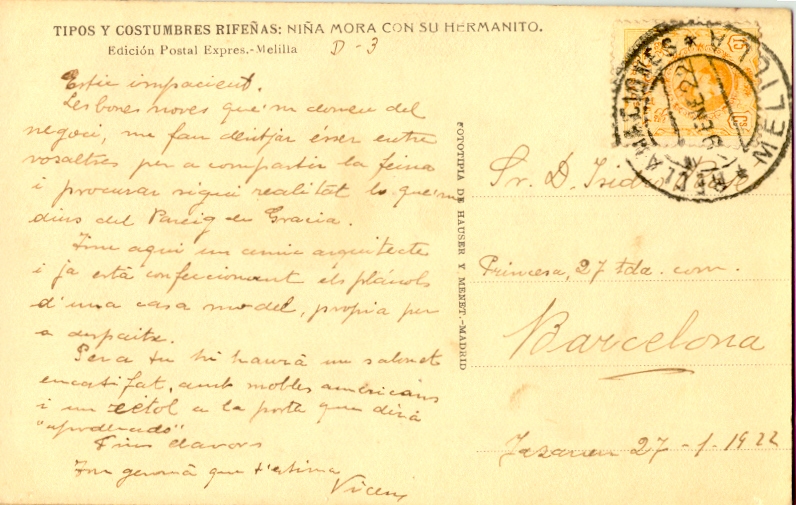 TIPOS Y COSTUMBRES RIFEÑAS: NIÑA MORA CON SU HERMANITO.
Edición Postal Expres.-Melilla
D-3
Estic impacient.
Les bones noves que'm doneu del
negoci, me fan desitjar ésser entre
vosaltres per a compartir la feina
i procurar sigui realitat lo que'm
dius del Passeig de Gracia.
Tinc aqui un amic arquitecte
i ja está confeccionant els plánols
d'una casa model, propia per
a despaitx.
Per a tu hi haurá un salonet
encatifat, amb mobles americans
i un rétol a la porta que dirá
"apoderado"
Fins alavors
Ton germá que t'estima
Vicens
FOTOTIPIA DE HAUSER Y MENET.-MADRID
MELILLA
RECLAMACIONES
ENE 22
15 cs
Sr. D. Isidro
Princesa, 27 tda. com.
Barcelona
27-1-1922